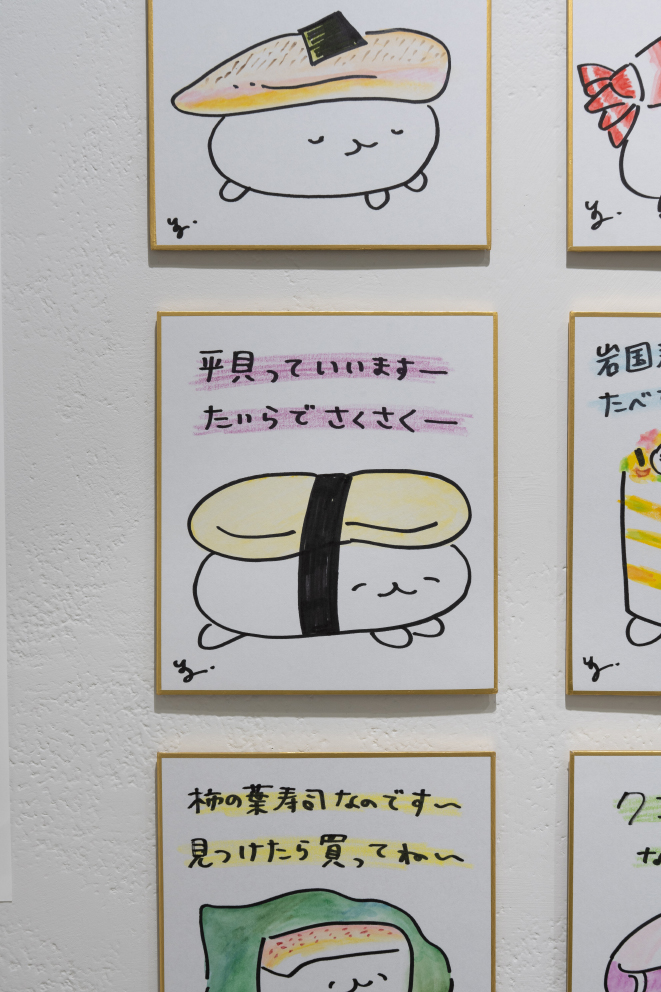 平貝っていいますー
たいらでさくさくー
岩国
たべ
柿の葉寿司なのです～
見つけたら買ってね～
ク
な